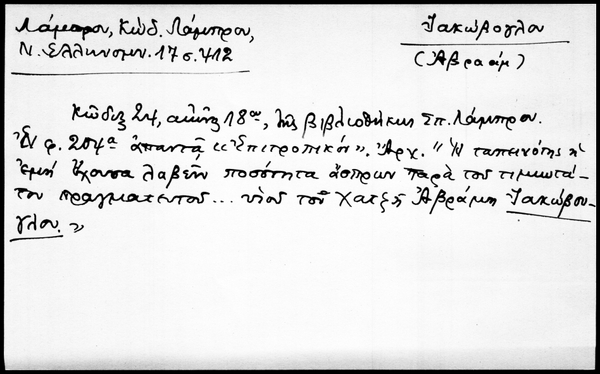 Λάμπρου, Κώδ. Λάμπρου,
Ν. Ελληνομν. 17 σ. 412
Ἰακώβογλου
(Ἀβραάμ)
Κῶδιξ 24, αἰῶνος 18ου, τῆς βιβλιοθήκης Σπ. Λάμπρου.
Ἐν φ. 204α ἀπαντᾷ «Ἐπιτροπικόν». Ἀρχ. "Ἡ ταπεινότης ἡ
ἐμὴ ἔχουσα λαβεῖν ποσότητα ἄσπρων παρὰ τοῦ τιμιωτά-
του πραγματευτοῦ... υἱοῦ τοῦ Χατζῆ Ἀβράμη Ἰακώβου-
γλου."